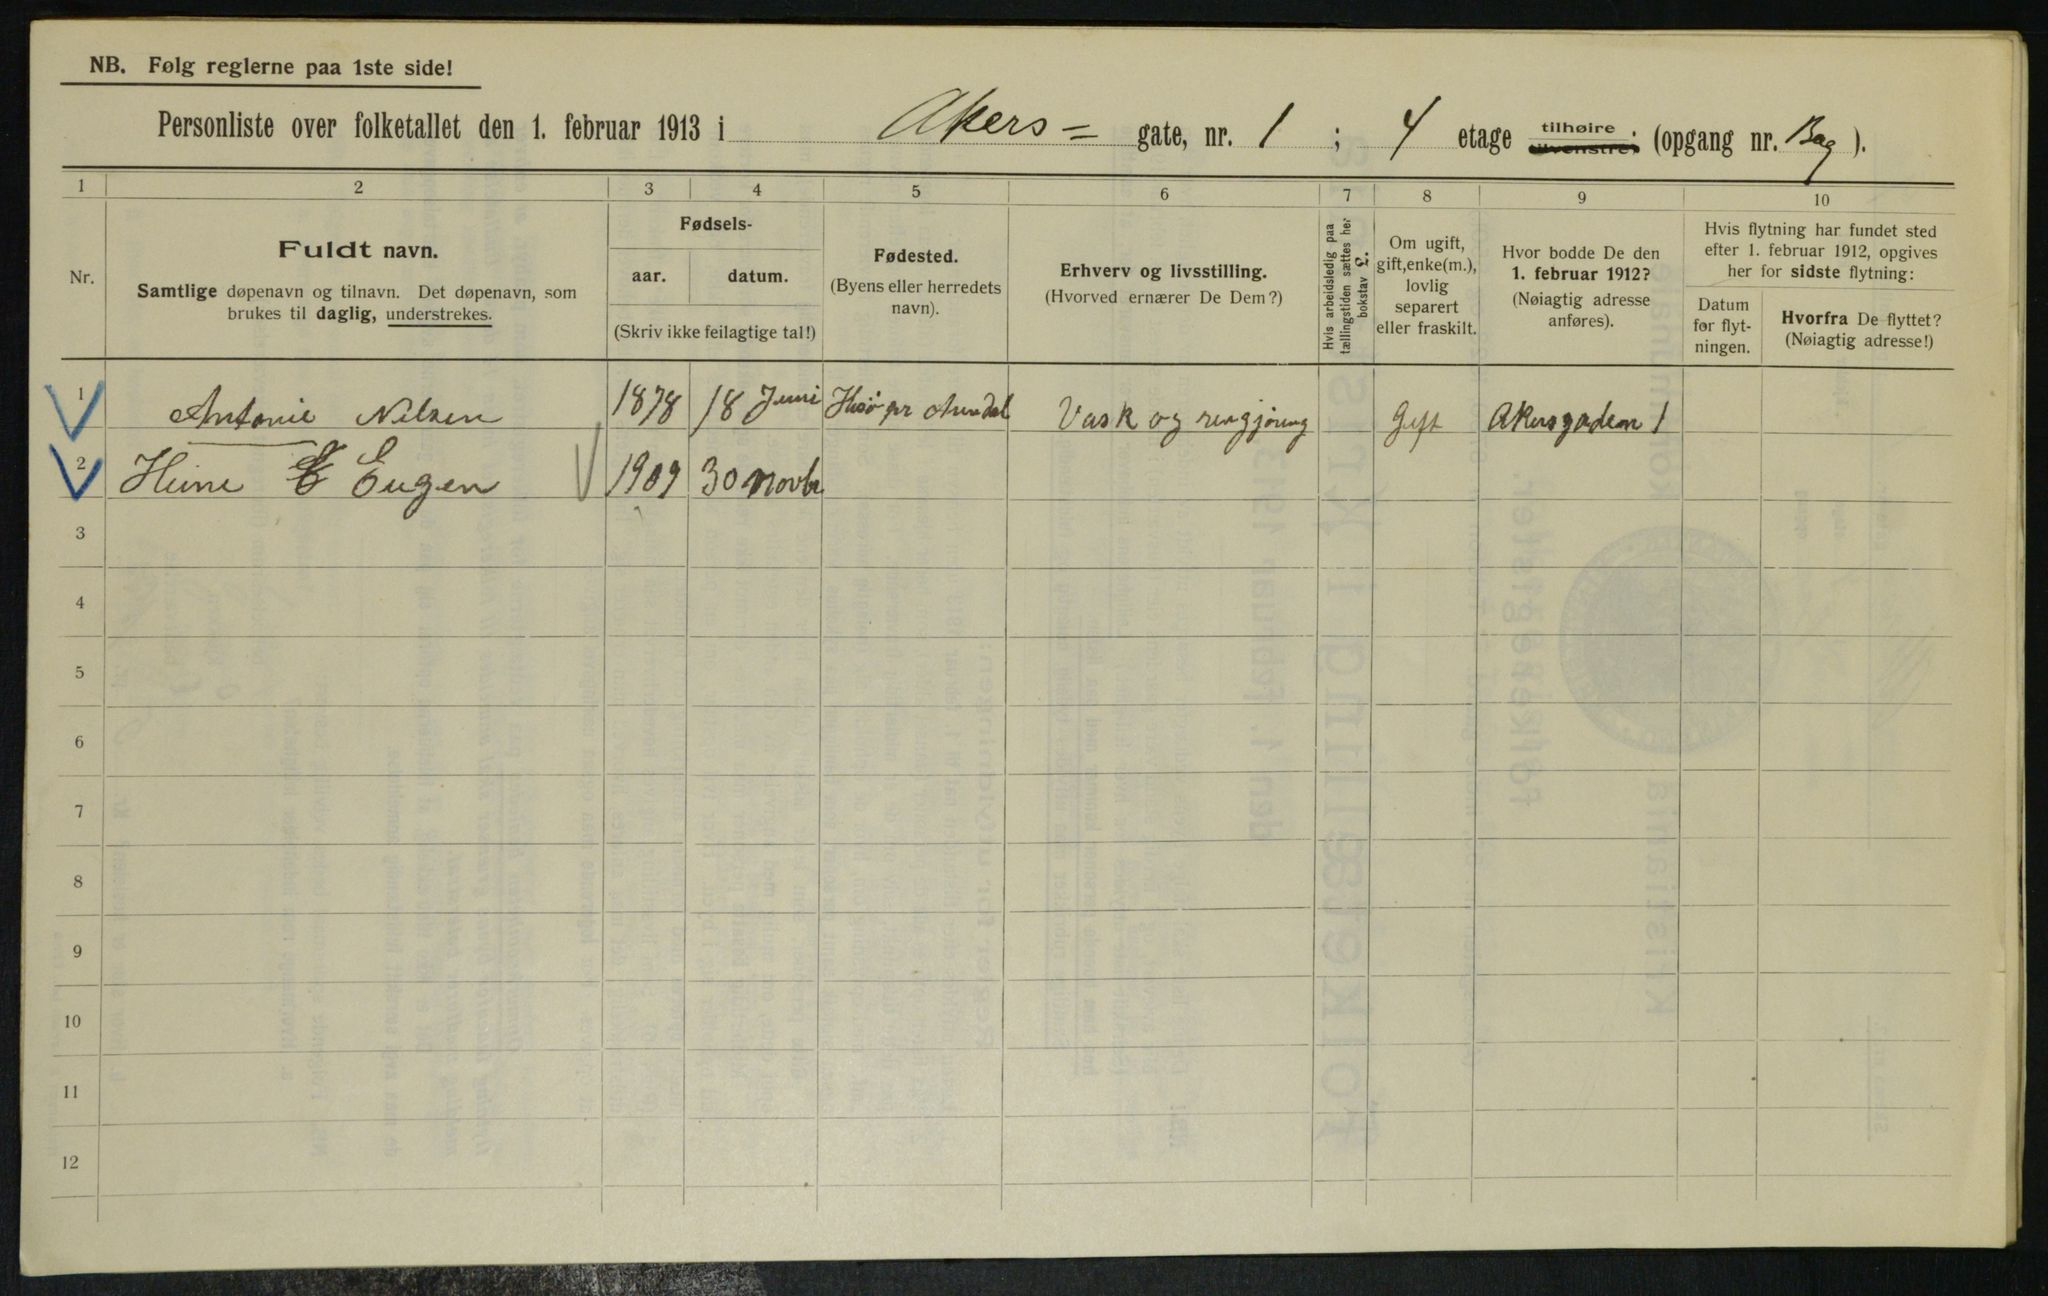 NB. Følg reglerne paa 1ste side!
Personliste over folketallet den 1. februar 1913 i Akers= gate, nr. 1 ; 4 etage tilhøire tilvenstre; (opgang nr. Bag ).
1 2 3 4 5 6 7 8 9 10
Nr.
Fuldt navn.
Samtlige døpenavn og tilnavn. Det døpenavn, som
brukes til daglig, understrekes.
Fødsels-
aar. datum.
(Skriv ikke feilagtige tal!)
Fødested.
(Byens eller herredets
navn).
Erhverv og livsstilling.
(Hvorved ernærer De Dem?)
Hvis arbeidsledig paa
tællingstiden sættes her
bokstav L.
Om ugift,
gift, enke(m.),
lovlig
separert
eller fraskilt.
Hvor bodde De den
1. februar 1912?
(Nøiagtig adresse
anføres).
Hvis flytning har fundet sted
efter 1. februar 1912, opgives
her for sidste flytning:
Datum
for flyt-
ningen.
Hvorfra De flyttet?
(Nøiagtig adresse!)
1 Antonie Nilsen 1878 18 Juni Hisø pr Arendal Vask og rengjøring Gift Akersgaden 1
2 Eugen 1909 30 novbr
3
4
5
6
7
8
9
10
11
12